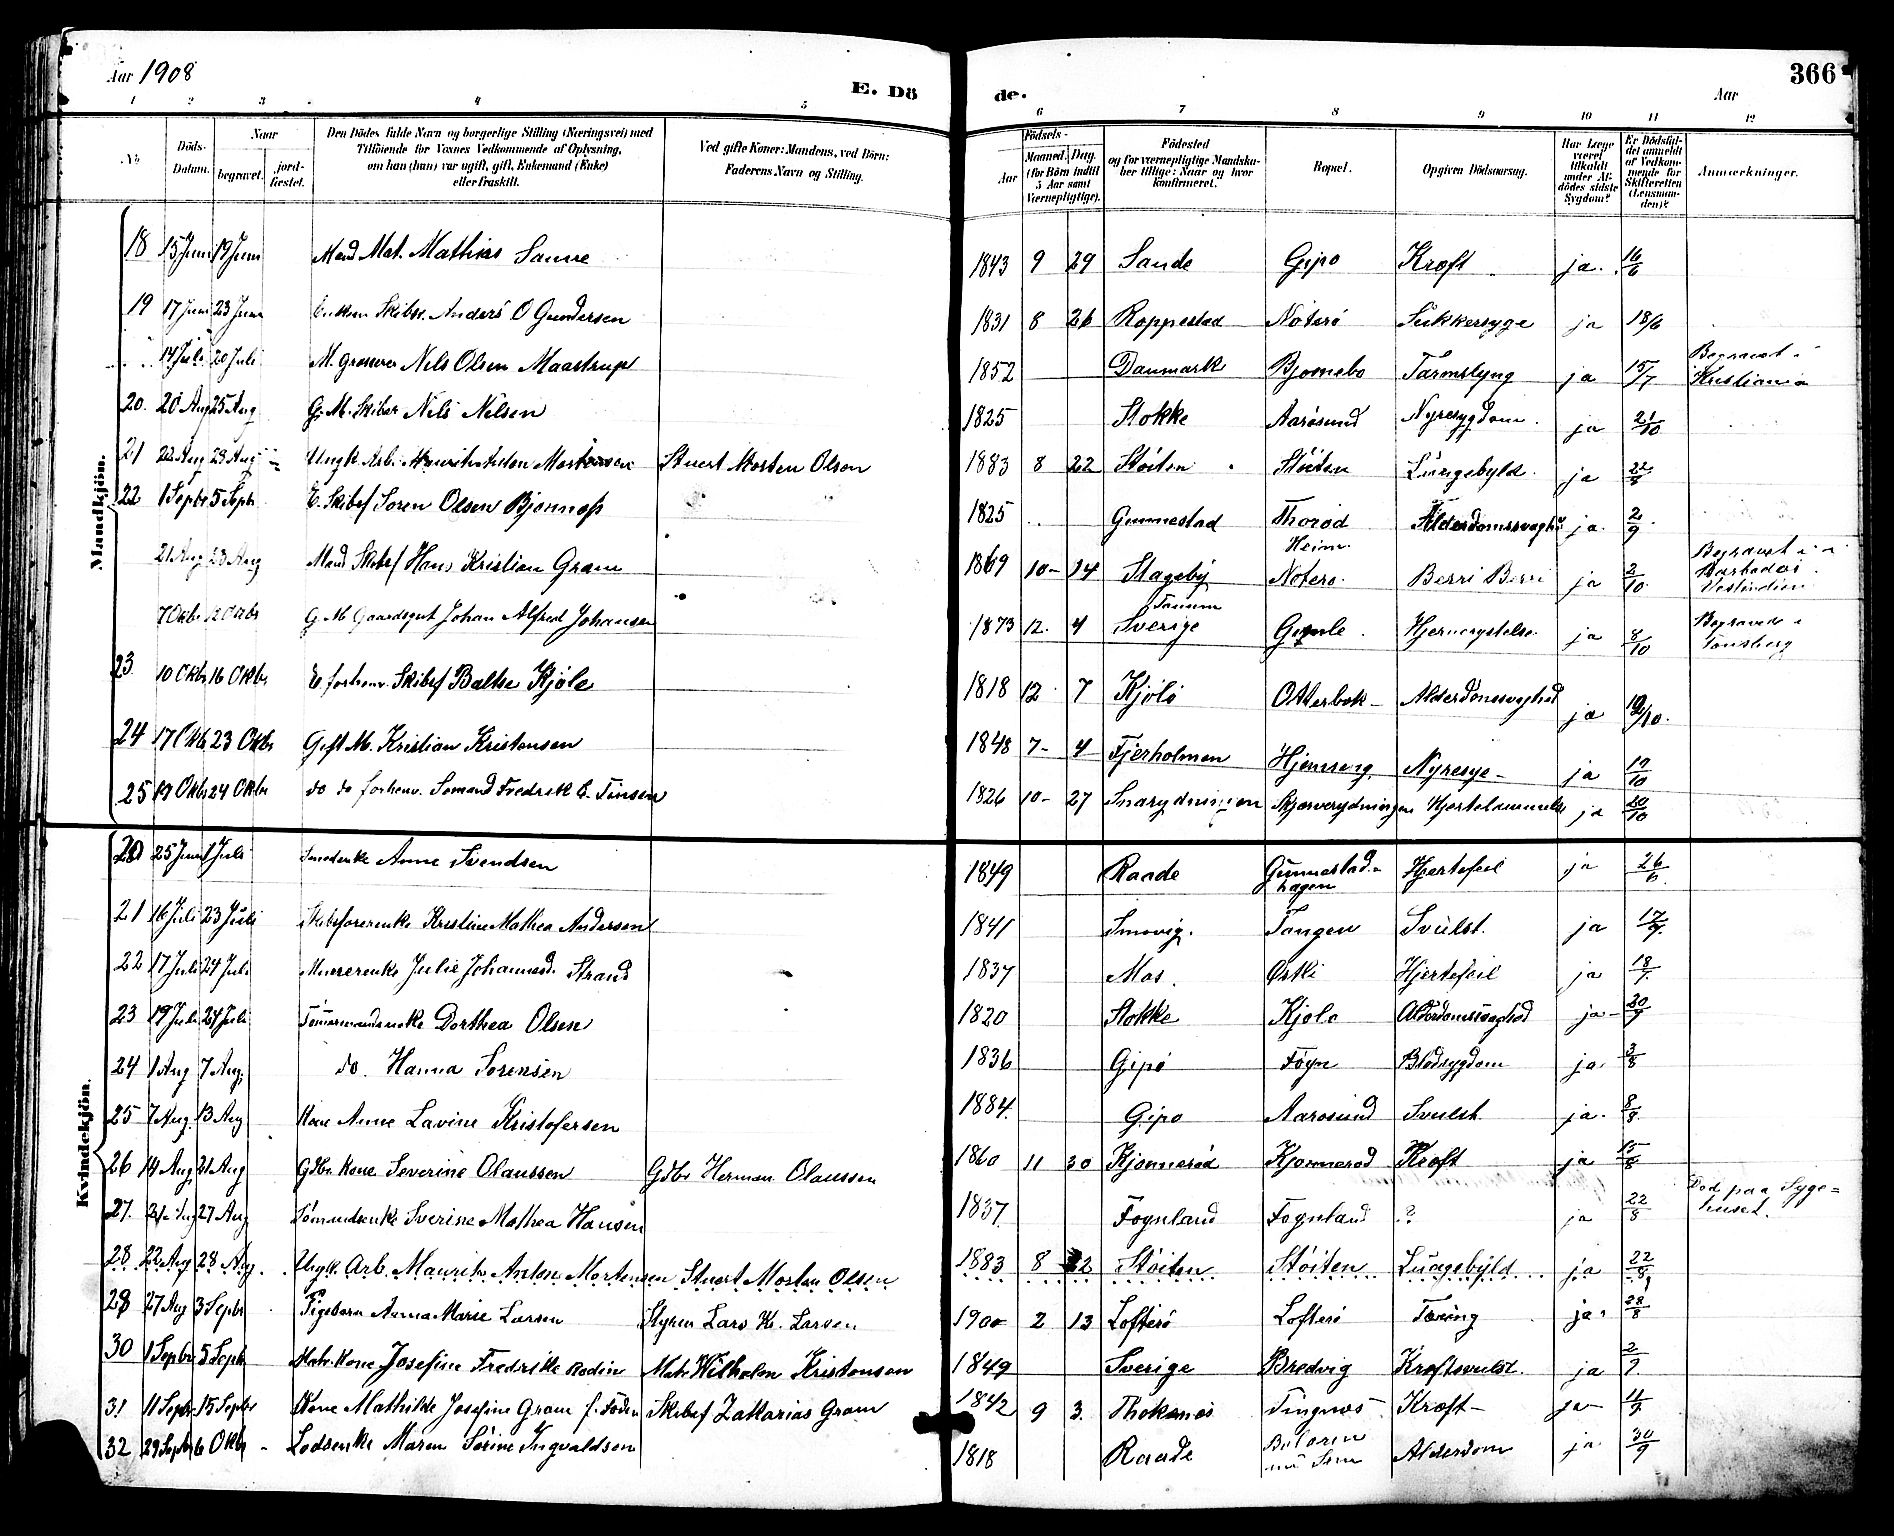 Aar 1908
E. Dö
de.
Aar
366
1 2 3 4 5 6 7 8 9 10 11 12
No
Döds-Datum.
Naar
begravet.
jord-fæstet.
Den Dödes fulde Navn og borgerlige Stilling (Næringsvei) med
Tilföiende for Voxnes Vedkommende af Oplysning,
om han (hun) var ugift, gift, Enkemand (Enke)
eller fraskilt.
Ved gifte Koner: Mandens, ved Börn:
Faderens Navn og Stilling.
Födsels-
Aar
Maaned. Dag.
(for Börn indtil
5 Aar samt
Værnepligtige).
Födested
og for værnepligtige Mandska-
ber tillige: Naar og hvor
konfirmeret.
Bopæl.
Opgiven Dödsaarsag.
Har Læge
været
tilkaldt
under Af-
dödes sidste
Sygdom?
Er Dödsfal-
det anmeldt
af Vedkom-
mende for
Skifteretten
(Lensman-
den)?
Anmærkninger.
Mandkjön.
18 15 Juni 19 Juni Mand Mat. Mathias Sanne 1843 9 29 Sande Gipø Kræft ja 16/6
19 17 Juni 23 Juni Enkem Skibsr. Anders O Gundersen 1831 8 26 Roppestad Nøterø Sukkersyge ja 18/6
14 Juli 20 Juli M. Grosserer Nils Olsen Maastrup 1852 Danmark Bjornebo Tarmslyng ja 15/7 Begravet i Kristiania
20. 20 Aug 25 Aug G. M. Skibsr Nils Nilsen 1825 Stokke Aarøsund Nyresygdom. ja 21/10
21 22 Aug 29 Aug Ungk Arb. Mauritz Anton Mortensen Stuert Morten Olsen 1883 8 22 Støiten Støiten Lungebyld. ja 22/8
22 1 Septbr 5 Septbr E. Skibsf Soren Olsen Bjonness 1825 Gunnestad Thorød Alderdomssvaghed ja. 2/9
21 Aug 23 Aug Mand Skibsf Hans Kristian Gram 1869 10 14 Stageby Heim Noterø. Berri Berri ja 2/10 Begravet i Barbados Vestindien
7 Oktbr 12 Oktbr G. M Gaardsgut Johan Alfred Johansen 1873 12. 4 Tanum Sverige Hjernerystelse ja 8/10 Begravede i Tønsberg
23 10 Oktbr 16 Oktbr E. forhenv. Skibsf Baltse Kjøle 1818 12 7 Kjølø Otterbæk Alderdomssvaghed ja
24 17 Oktbr 23 Oktbr Gift M. Kristian Kristensen 1848 7 4 Fjerholmen Hjemseng Nyresyge ja 19/10
25 19 Oktbr 24 Oktbr do do forhenv. Sømand Fredrek C. Tinsen 1826 10 27 Snarydningen Skjærverydningen Hjertelammelse ja 20/10
Kvindekjön.
20 25 Juni 1 Juli Smedenke Anne Svendsen 1849 Raade Gunnestadhagen Hjertefeil ja 26/6
21 16 Juli 23 Juli Skibsførerenke Kristine Mathea Andersen 1841 Smovig. Tangen Svulst. ja 17/7
22 17 Juli 24 Juli Murerenke Julie Johannesd. Strand 1837 Mos. Østbi Hjertefeil ja 18/7
23 19 Juli 24 Juli Tømmermandsenke Dorthea Olsen 1820 Stokke Kjole Alderdomssvaghed ja 20/7
24 1 Aug 7 Aug do. Hanna Sorensen 1836 Gipø Føyn Blodsygdom ja. 3/8
25 7 Aug. 13 Aug Kone Anne Lavine Kristofersen 1884. Gipø Aarosund Svulst ja. 8/8
26 14 Aug 21 Aug Gdbr. Kone Severine Olaussen Gdbr Herman Olaussen 1860 11 30 Kjonnerød Kjonnerød Kræft ja 15/8
27. 21 Aug 27 Aug Sømandsenke Sverine Mathea Hansen 1837 Foynland Foynland ? ja 22/8 Død paa Sygehuset.
28 22 Aug 28 Aug. Ungk. Arb. Mauritz Anton Mortensen Stuert Morten Olsen 1883 8 22 Støiten Støiten Lungebyld ja 22/8
28 27 Aug 3 Septbr Pigebarn Anna Marie Larsen Styrm Lars K. Larsen 1900 2 13 Lofterø Lofterø Tæring ja. 28/8
30 1 Septbr 5 Septb Matr. Kone Josefine Fredrikke Bodin Matr Wilhelm Kristensen 1849 Sverige Bredvig Kræftsvulst. ja 2/9
31 11 Septbr 15 Septbr Kone Mathilde Josefine Gram f. Foden Skibsf Zakarias Gram 1842 9 3. Thokenes Tingnes Kræft ja 11/9
32 29 Septbr 6 Oktbr Lodsenke Maren Sørine Ingvaldsen 1818 Raade Alderdom ja 30/9